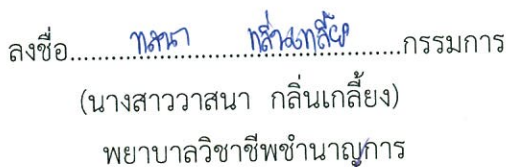 ลงชื่อ.....วาสนา กลิ่นเกลี้ยง.....กรรมการ
(นางสาววาสนา กลิ่นเกลี้ยง)
พยาบาลวิชาชีพชำนาญการ